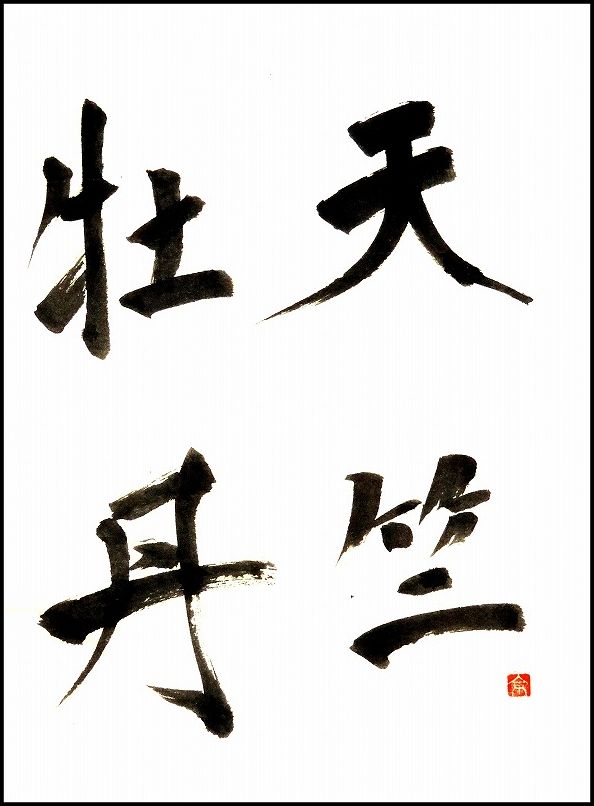 天竺
牡丹